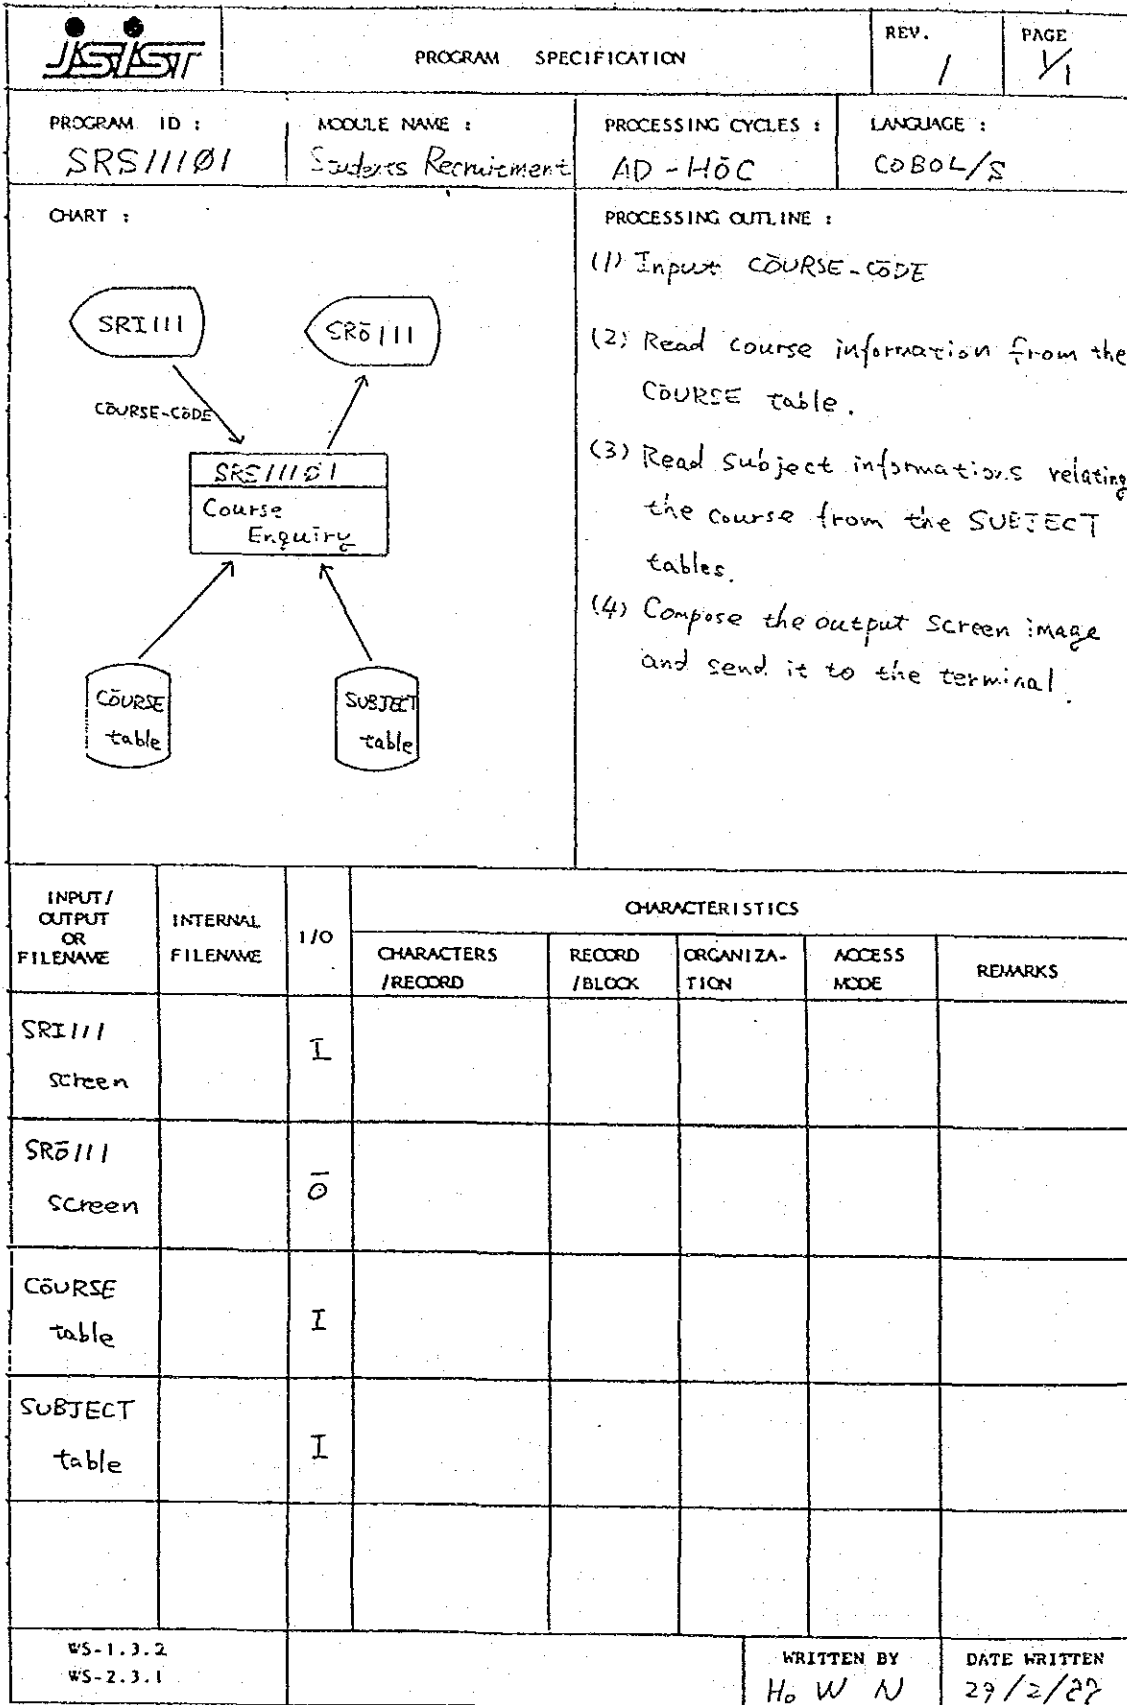 JSIST
PROGRAM SPECIFICATION
REV.
1
PAGE
1/1
PROGRAM ID :
SRS111Ø1
MODULE NAME :
Students Recruitment
PROCESSING CYCLES :
AD-HŌC
LANGUAGE :
COBOL/S
CHART :
SRI111
SRŌ111
CŌURSE-CŌDE
SRS111Ø1
Course
Enquiry
CŌURSE
table
SUBJECT
table
PROCESSING OUTLINE :
(1) Input CŌURSE-CŌDE
(2) Read course information from the
CŌURSE table.
(3) Read subject informations relating
the course from the SUBJECT
tables.
(4) Compose the output screen image
and send it to the terminal.
INPUT/
OUTPUT
OR
FILENAME
INTERNAL
FILENAME
I/O
CHARACTERISTICS
CHARACTERS
/RECORD
RECORD
/BLOCK
ORGANIZA-
TION
ACCESS
MODE
REMARKS
SRI111
screen
I
SRŌ111
screen
Ō
CŌURSE
table
I
SUBJECT
table
I
WS-1.3.2
WS-2.3.1
WRITTEN BY
Ho W N
DATE WRITTEN